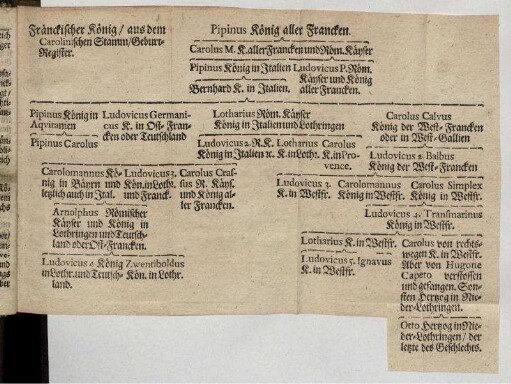 Fränckischer König / aus dem
Carolinschen Stamm / Geburt-
Register.
Pipinus König aller Francken.
Carolus M. K. aller Francken und Röm. Käyser
Pipinus König in Italien Ludovicus P. Röm.
Käyser und König
Bernhard K. in Italien. aller Francken.
Pipinus König in
Aqvitanien
Pipinus Carolus
Ludovicus Germani-
cus K. in Ost-Fran-
cken oder Teutschland
Lotharius Röm. Käyser
König in Italien und Lothringen
Ludovicus 2. R. K. Lotharius Carolus
König in Italien ꝛc. K. in Loth. K. in Pro-
vence.
Carolus Calvus
König der West-Francken
oder in West-Gallien
Ludovicus 2. Balbus
König der West-Francken
Carolomannus Kö-
nig in Bäyrn und
letzlich auch in Ital.
Ludovicus 3.
Kön. in Loth.
und Franck.
Carolus Cras-
sus R. Käys.
und König al-
ler Francken.
Ludovicus 3. Carolomannus Carolus Simplex
K. in Westfr. König in Westfr. König in Westfr.
Arnolphus Römischer
Käyser und König in
Lothringen und Teutsch-
land oder Ost-Francken.
Ludovicus 4. Transmarinus
König in Westfr.
Ludovicus 4 König
in Lothr. und Teutsch-
land.
Zwentiboldus
Kön. in Lothr.
Lotharius K. in Westfr.
Ludovicus 5. Ignavus
K. in Westfr.
Carolus von rechts-
wegen K. in Westfr.
Aber von Hugone
Capeto verstossen
und gefangen. Son-
sten Hertzog in Nie-
der-Lothringen.
Otto Hertzog in Nie-
der-Lothringen / der
letzte des Geschlechts.